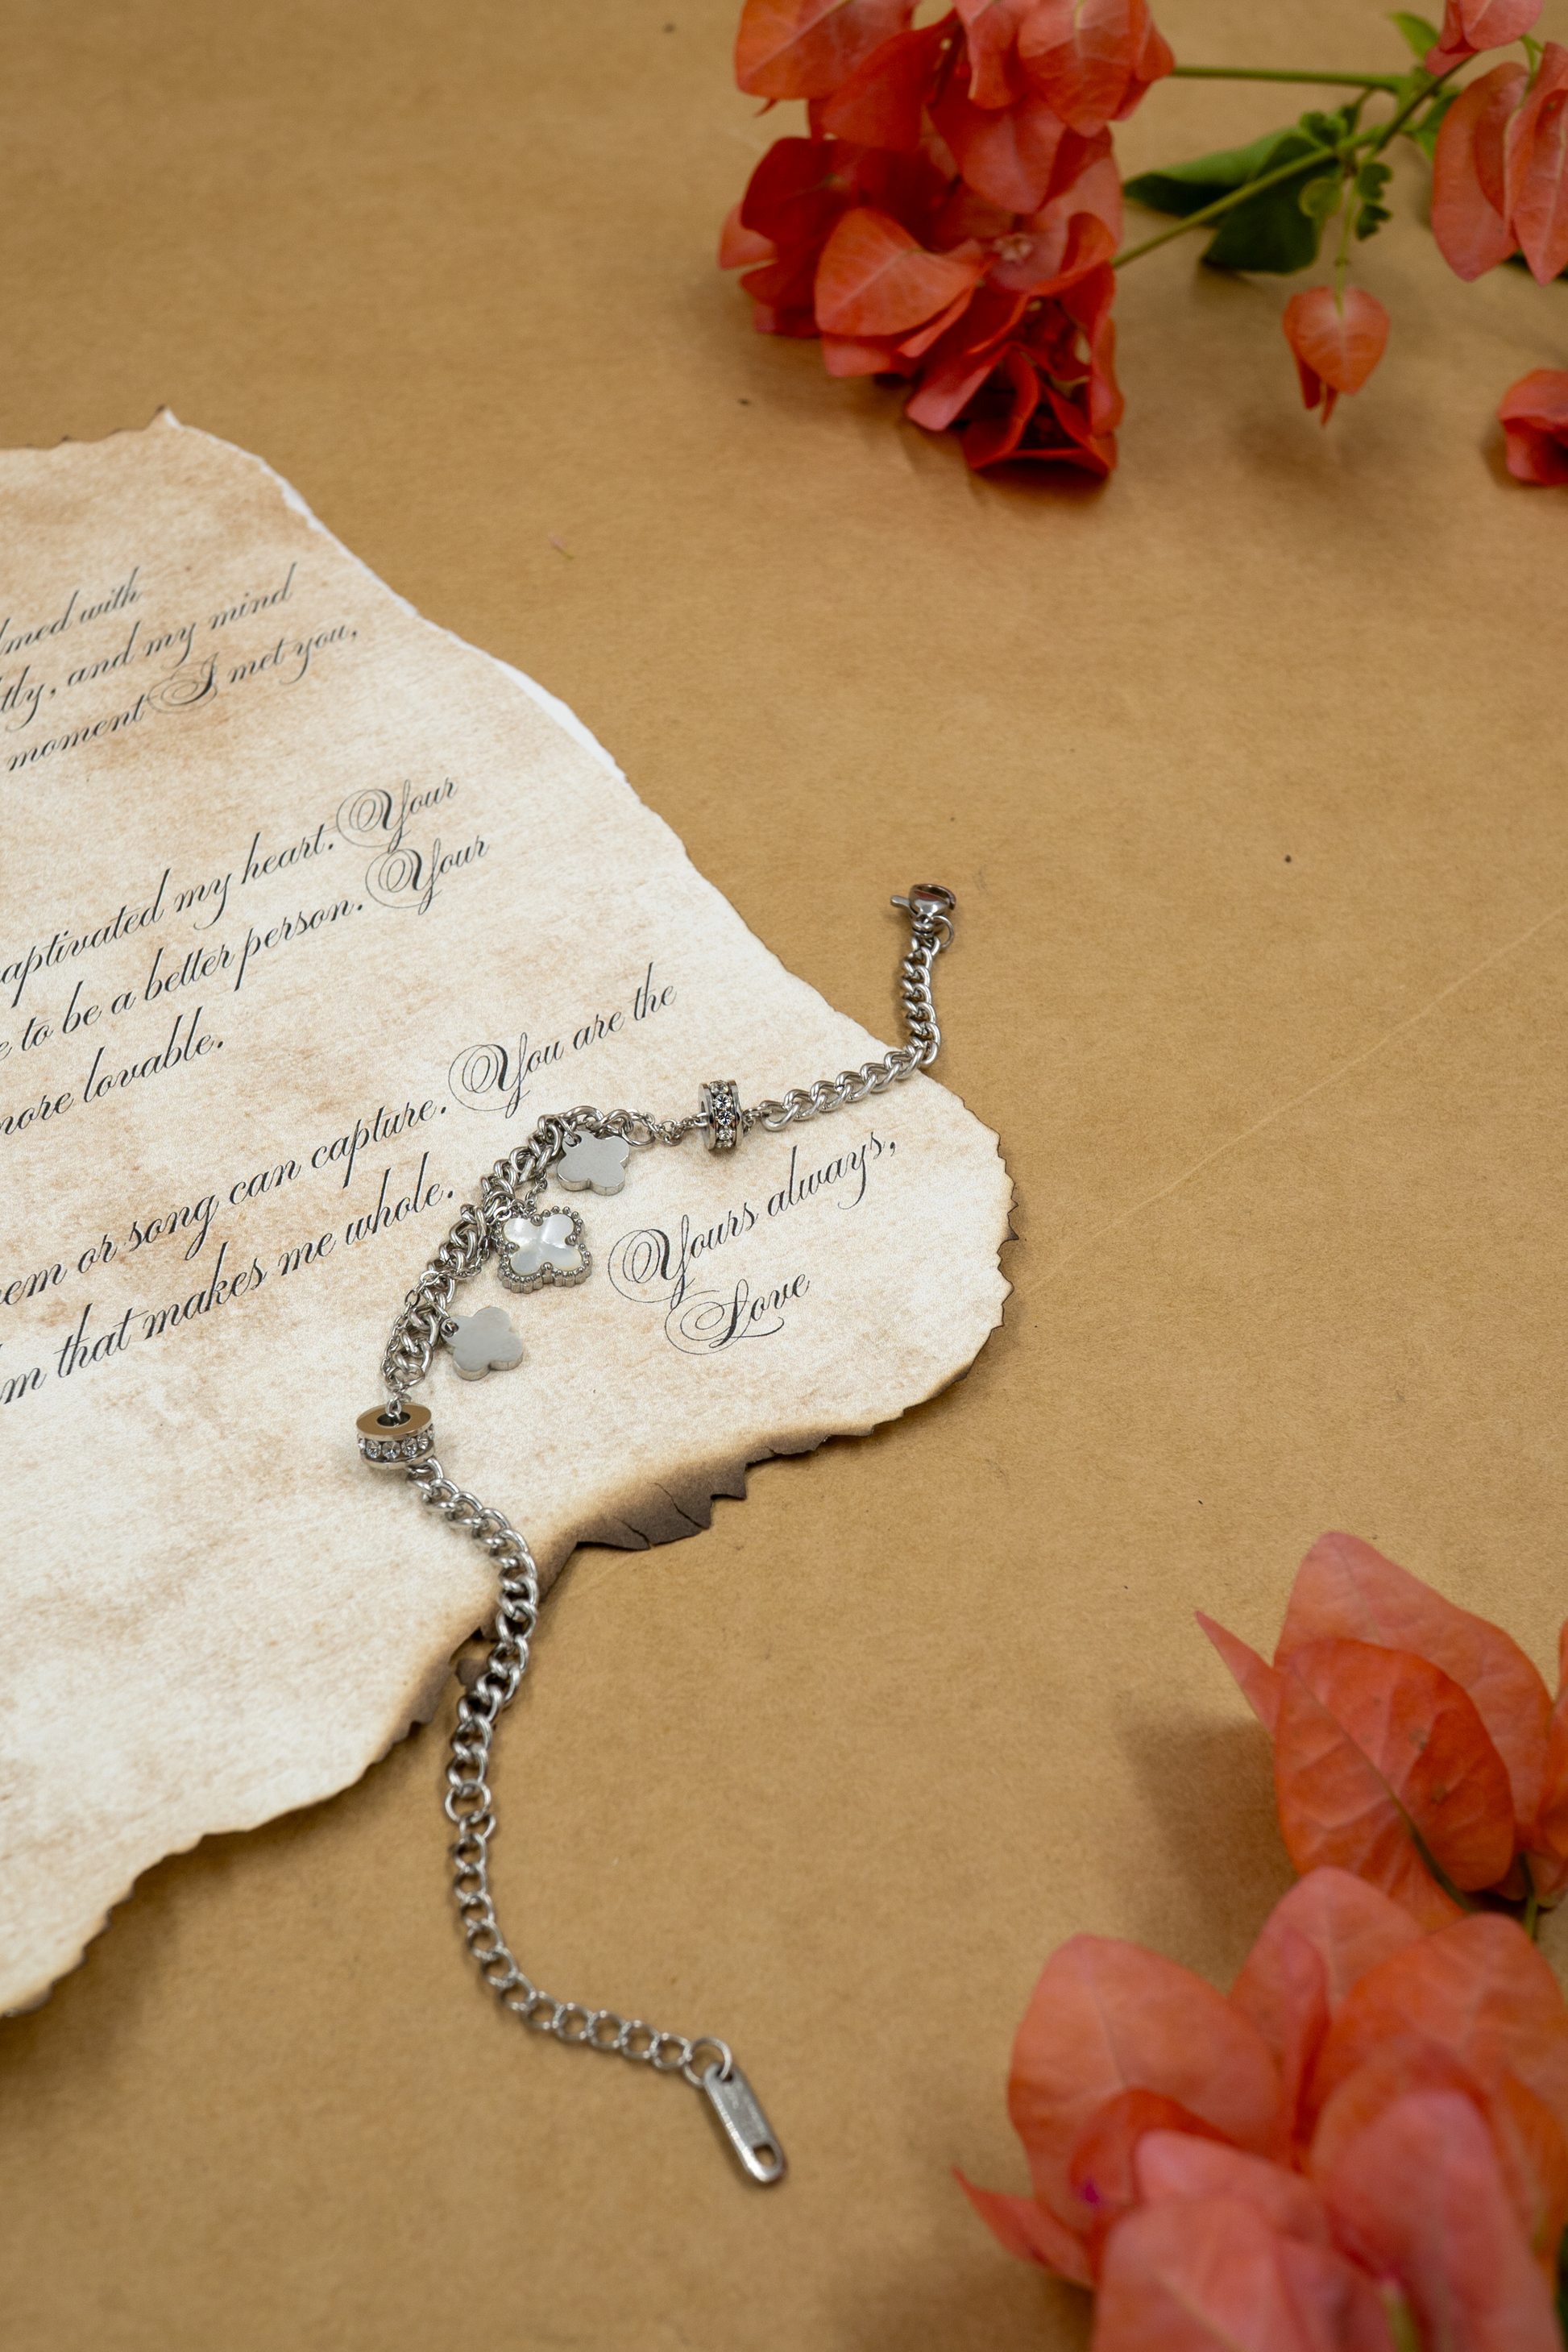 lmed with
tly, and my mind
moment I met you,
aptivated my heart. Your
e to be a better person. Your
more lovable.
em or song can capture. You are the
m that makes me whole.
Yours always,
Love